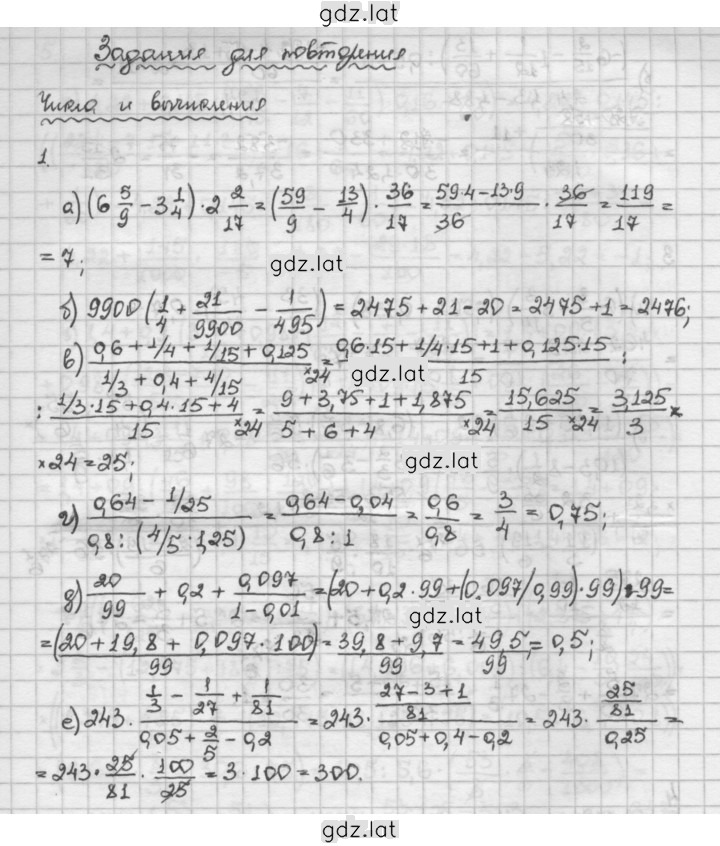 gdz.lat
Задания для повторения
Числа и вычисления
1.
а) (6 5/9 − 3 1/4) · 2 2/17 = (59/9 − 13/4) · 36/17 = (59·4−13·9)/36 · 36/17 = 119/17 =
= 7;
gdz.lat
б) 9900(1/4 + 21/9900 − 1/495) = 2475 + 21 − 20 = 2475 + 1 = 2476;
в) (0,6 + 1/4 + 1/15 + 0,125)/(1/3 + 0,4 + 4/15) ×24 = (0,6·15 + 1/4·15 + 1 + 0,125·15)/15 :
gdz.lat
: (1/3·15 + 0,4·15 + 4)/15 ×24 = (9 + 3,75 + 1 + 1,875)/(5 + 6 + 4) ×24 = 15,625/15 ×24 = 3,125/3 ×
×24 = 25;
г) (0,64 − 1/25)/(0,8 : (4/5 · 1,25)) = (0,64 − 0,04)/(0,8 : 1) = 0,6/0,8 = 3/4 = 0,75;
д) 20/99 + 0,2 + 0,097/(1 − 0,01) = (20 + 0,2 · 99 + (0.097/0,99) · 99) : 99 =
gdz.lat
= (20 + 19,8 + 0,097 · 100)/99 = (39,8 + 9,7)/99 = 49,5/99 = 0,5;
е) 243 · (1/3 − 1/27 + 1/81)/(0,05 + 2/5 − 0,2) = 243 · ((27 − 3 + 1)/81)/(0,05 + 0,4 − 0,2) = 243 · (25/81)/0,25 =
= 243 · 25/81 · 100/25 = 3 · 100 = 300.
gdz.lat